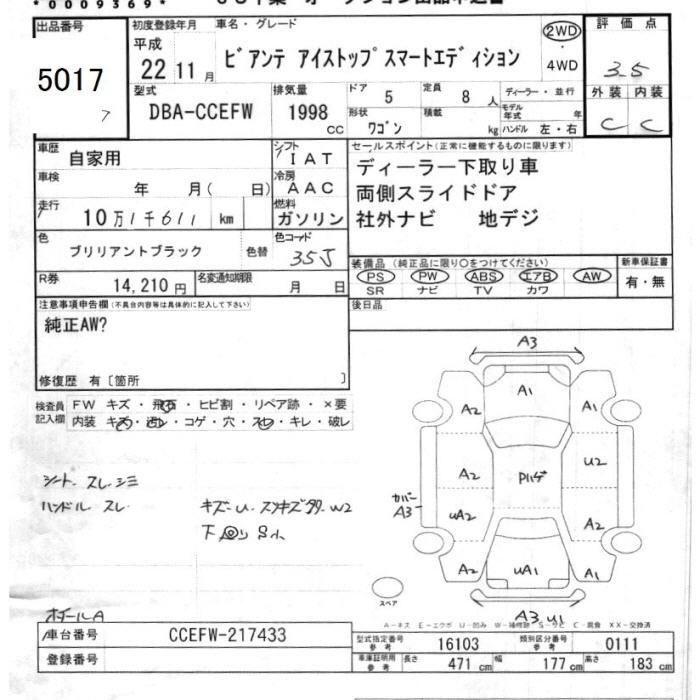 *0009369*
出品番号
5017
7
初度登録年月
平成
22 11月
車名・グレード
ビアンテ アイストップスマートエディション
2WD
・
4WD
評価点
3.5
外装 内装
C C
型式
DBA-CCEFW
排気量
1998
CC
ドア
5
定員
8 人
ディーラー・並行
モデル年式 年
形状
ワゴン
積載
kg
ハンドル 左・右
車歴
自家用
シフト
IAT
車検
年 月( 日)
冷房
AAC
走行
10万1千611 km
燃料
ガソリン
色
ブリリアントブラック
色替
色コード
35J
R券
14,210円
名変通知期限
月 日
セールスポイント(正常に機能するものに限ります)
ディーラー下取り車
両側スライドドア
社外ナビ 地デジ
装備品(純正品に限り○をつけてください)
PS PW ABS エアB AW
SR ナビ TV カワ
新車保証書
有・無
後日品
注意事項申告欄(不具合内容等は具体的に記入して下さい)
純正AW?
修復歴 有〔箇所 〕
検査員
記入欄
FW キズ・飛石・ヒビ割・リペア跡・×要
内装 キズ・汚レ・コゲ・穴・スレ・キレ・破レ
シート スレ シミ
ハンドル スレ
キズ-U
W2
下回り S小
ホイールA
A3
A1
A2
A1
A2
U2
Pハゲ
カバー
A3
uA2
A2
A2
uA1
A1
スペア
A3 U1
A-キズ E-エクボ U-凹み W-補修跡 S-サビ C-腐食 XX-交換済
車台番号
CCEFW-217433
登録番号
型式指定番号
参考
16103
類別区分番号
参考
0111
車庫証明用
参考
長さ 471 cm 幅 177 cm 高さ 183 cm